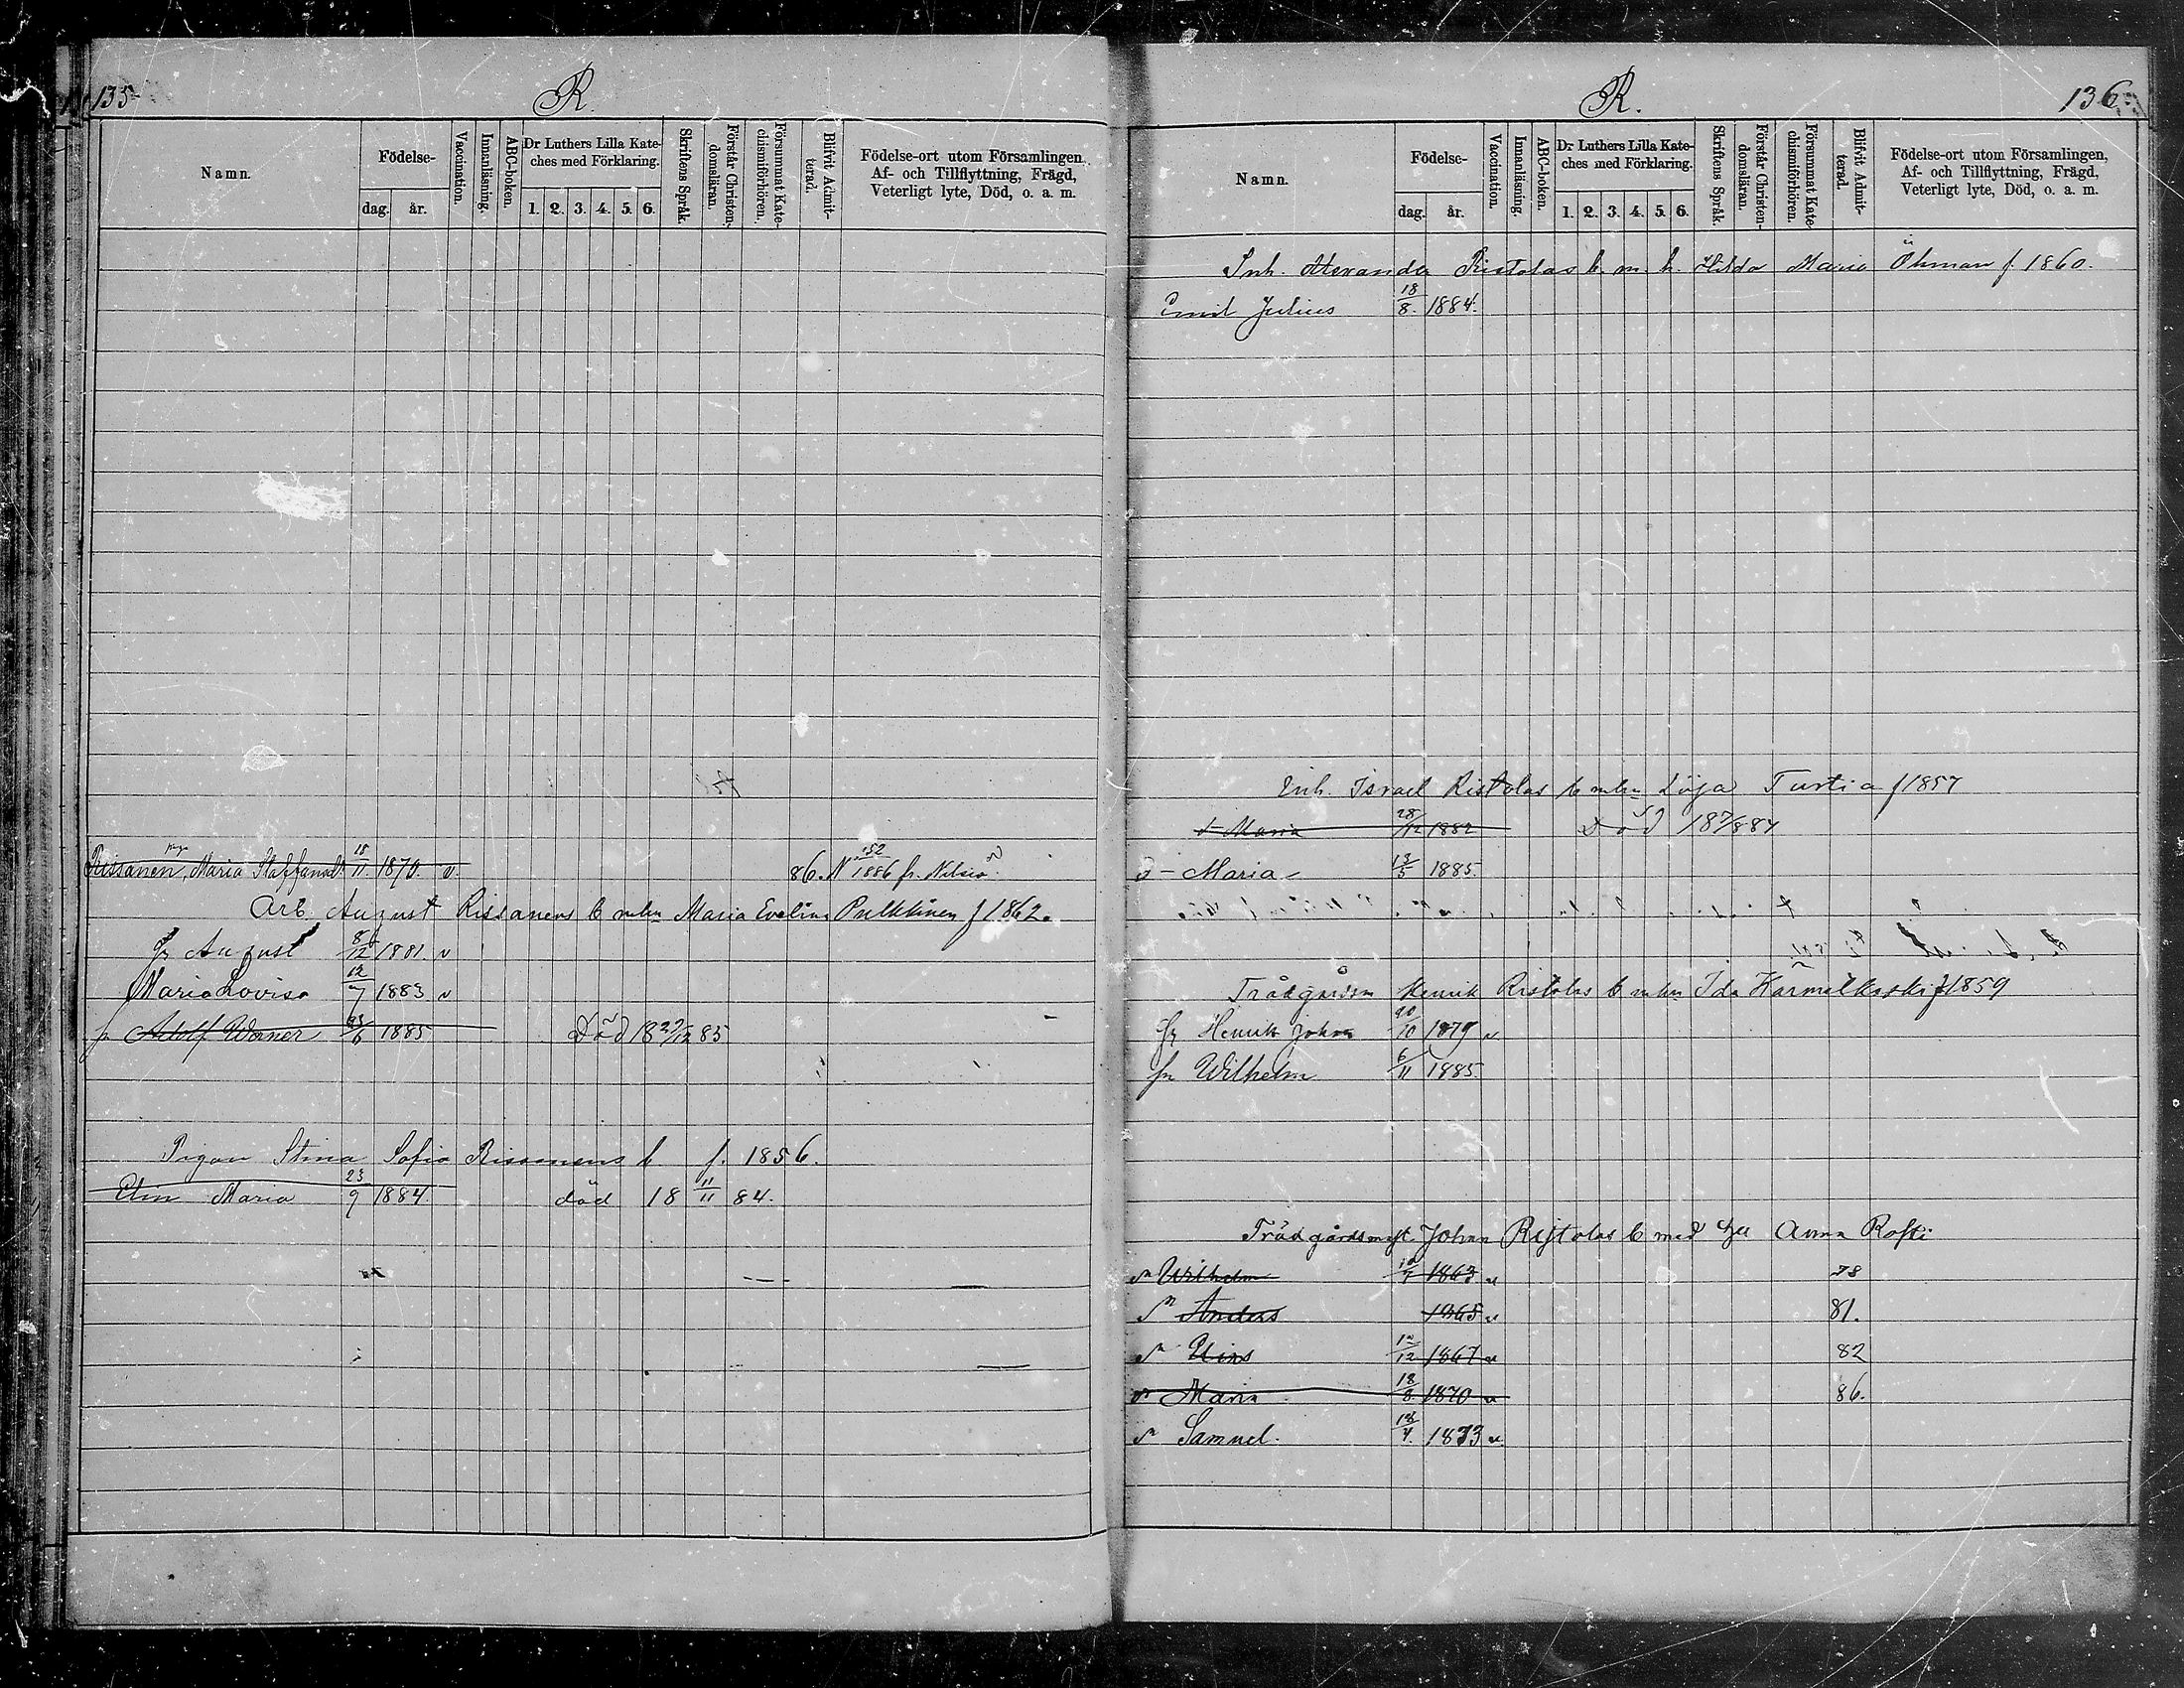 135
R.
Namn.
Födelse-
dag. år.
Vaccination.
Innanläsning.
ABC-boken.
Dr Luthers Lilla Kate-
ches med Förklaring.
1. 2. 3. 4. 5. 6.
Skriftens Språk.
Förstår Christen-
domsläran.
Försummat Kate-
chismiförhören.
Blifvit Admit-
terad.
Födelse-ort utom Församlingen,
Af- och Tillflyttning, Frägd,
Veterligt lyte, Död, o. a. m.
Rissanen, Maria Staffansd. 15/11 1870. v 86. N 152/1886 fr. Nilsiä.
Arb. August Rissanens b mhu Maria Evelina Pulkkinen f 1862.
August 8/12 1881. v
Maria Lovisa 12/7 1883 v
Adolf Werner 23/6 1885 Död 18 29/12 85
Pigan Stina Sofia Rissanens b f. 1856.
Elin Maria 23/9 1884. död 18 11/11 84.
R.
136
Namn.
Födelse-
dag. år.
Vaccination.
Innanläsning.
ABC-boken.
Dr Luthers Lilla Kate-
ches med Förklaring.
1. 2. 3. 4. 5. 6.
Skriftens Språk.
Förstår Christen-
domsläran.
Försummat Kate-
chismiförhören.
Blifvit Admit-
terad.
Födelse-ort utom Församlingen,
Af- och Tillflyttning, Frägd,
Veterligt lyte, Död, o. a. m.
Inh. Alexander Ristolas b. m. h. Hilda Maria Öhman f. 1860.
Emil Julius 18/8. 1884.
Inh. Israel Ristolas b mhu Löja Turtia f 1857
d- Maria 28/12 1882 Död
d- Maria 13/5 1885.
Trädgårdsm Henrik Ristolas b mhu Ida Karmalkoski f 1859
Henrik Johan 20/10 1879 v
Wilhelm 6/11 1885.
Trädgårdsmst. Johan Ristolas b med Anna Rofti
Wilhelm 1863 v 78
Anders 1865 v 81.
12/12 1867 v 82
Maria 18/8 1870 v 86.
Samuel. 1873 v.